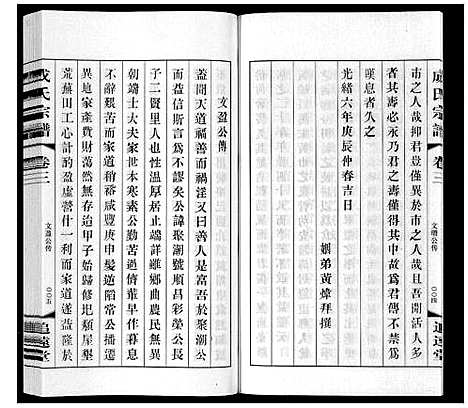 市之人哉抑君豈僅異於市之人哉夫君
者其壽必永乃君之壽僅得其中故爲君傳不禁爲
嘆息者久之
光緒六年庚辰仲春吉日
姻弟黃煒拜撰
戚氏宗譜
卷三
文瓚公傳
〇〇四
追遠堂
文盈公傳
蓋聞天道福善而禍淫又曰善人是富吾於聚潮公
而益信斯言爲不謬矣公諱聚潮號順昌彩榮公長
子二賢里人也性溫厚居止端詳雖鄉曲農民無異
朝端士大夫也本寒素公克自樹立情華早作暮息
不辭艱苦而家道稍裕咸豐庚申髮逆陷常公播越
異地家產費財蕩然無存迨甲子始歸修圯類屋墾
荒蕪田工心計酌盈虛營什一利而家道遂益隆於
戚氏宗譜
卷三
文盈公傳
〇〇五
追遠堂